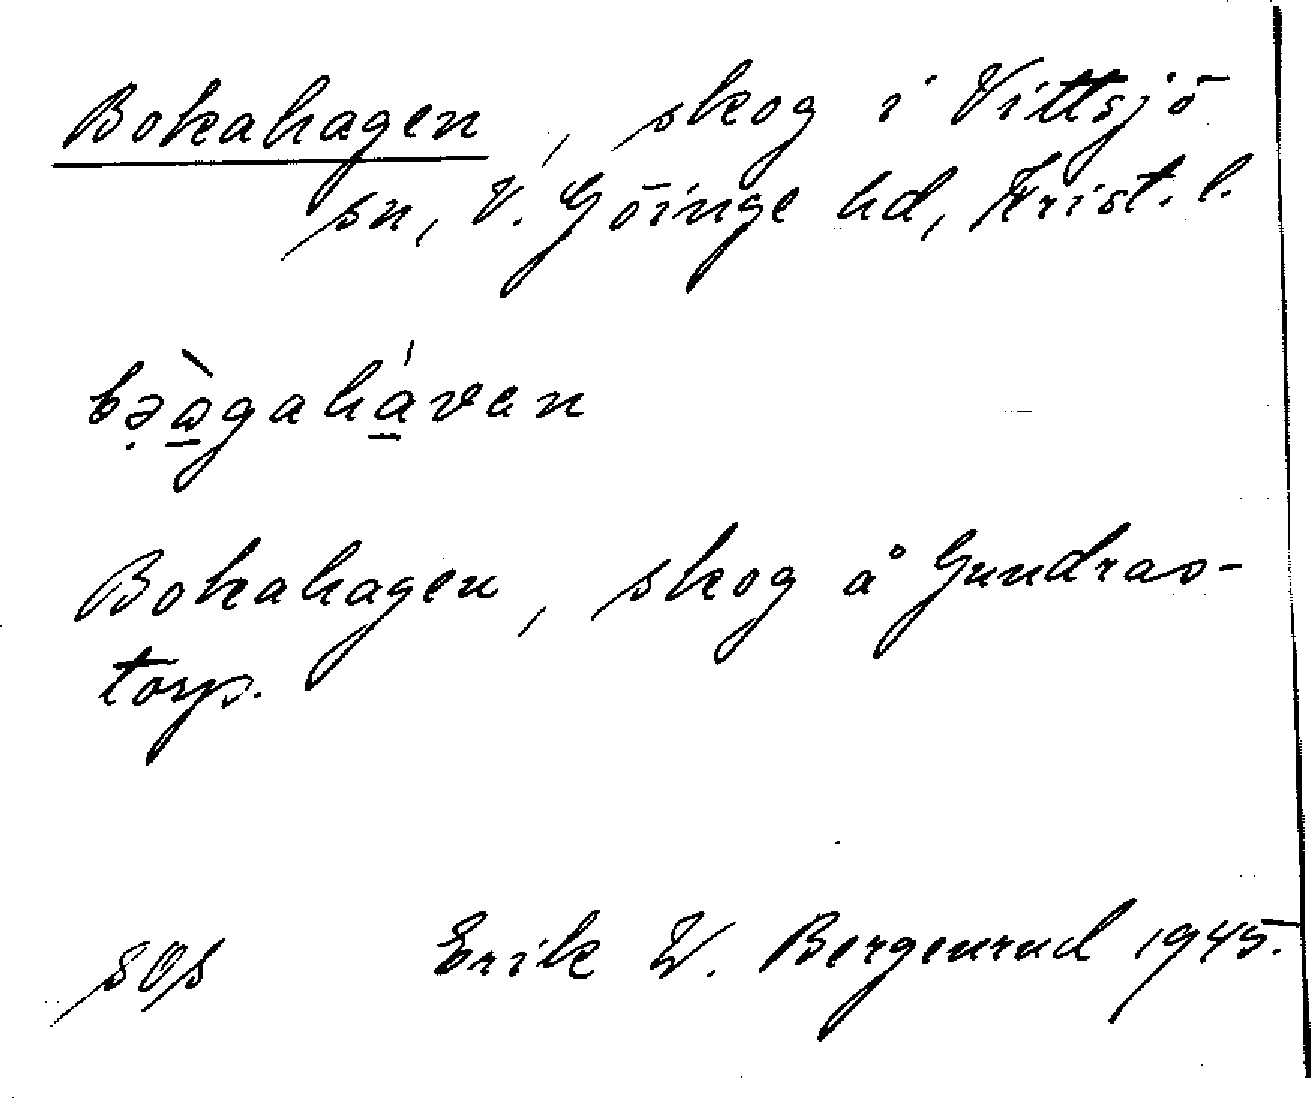 Bokahagen, skog i Vittsjö
sn, V. Göinge hd, Krist. l.
bə̣ὼ̱gahá̱van
Bokahagen, skog å Gundras-
torp.
Erik W. Bergenrud 1945.